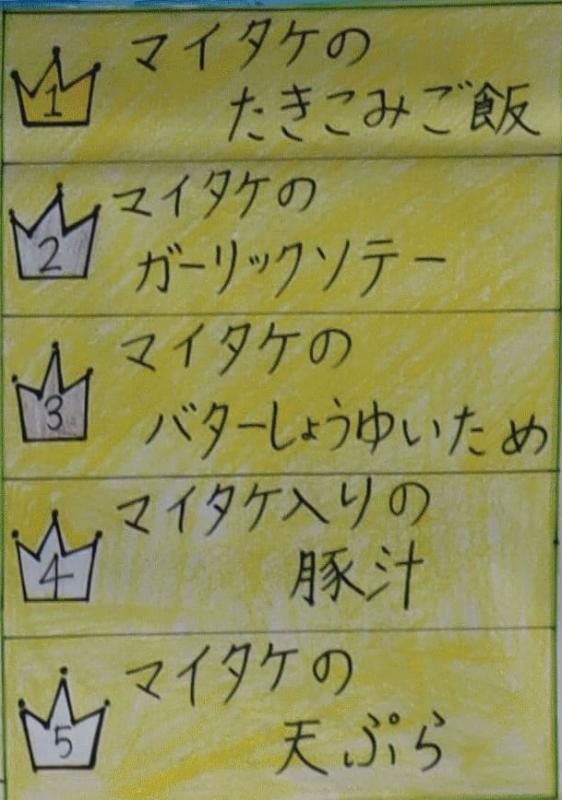 1 マイタケの
たきこみご飯
2 マイタケの
ガーリックソテー
3 マイタケの
バターしょうゆいため
4 マイタケ入りの
豚汁
5 マイタケの
天ぷら